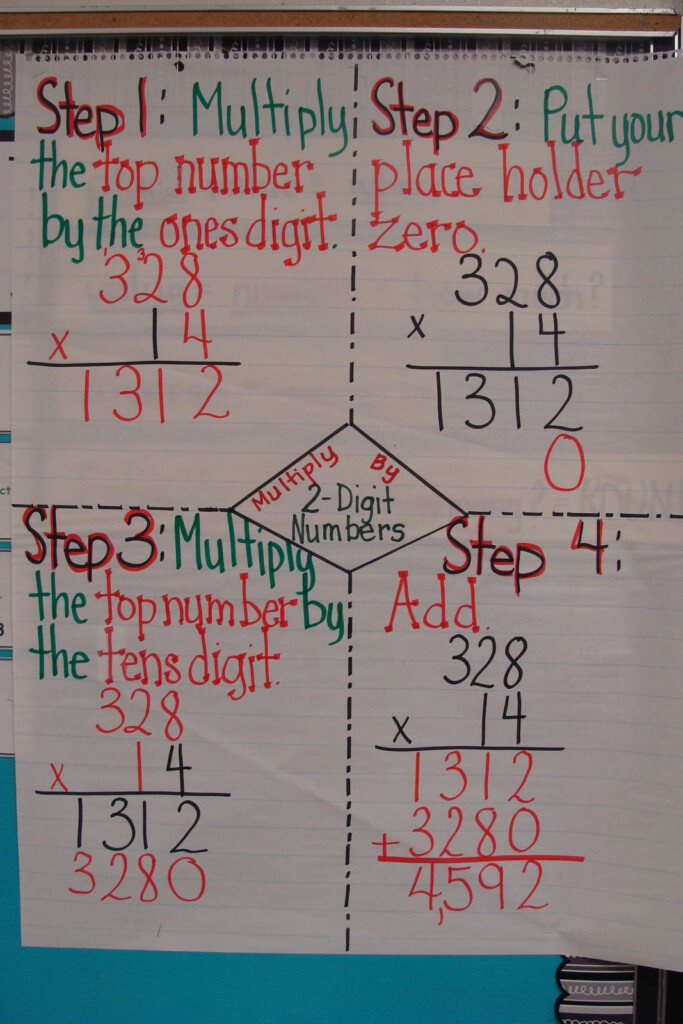 Step 1: Multiply
the top number
by the ones digit.
1 3
328
x 14
1312
Step 2: Put your
place holder
zero.
328
x 14
1312
0
Multiply By
2-Digit
Numbers
Step 3: Multiply
the top number by
the tens digit.
328
x 14
1312
3280
Step 4:
Add.
328
x 14
1312
+3280
4,592